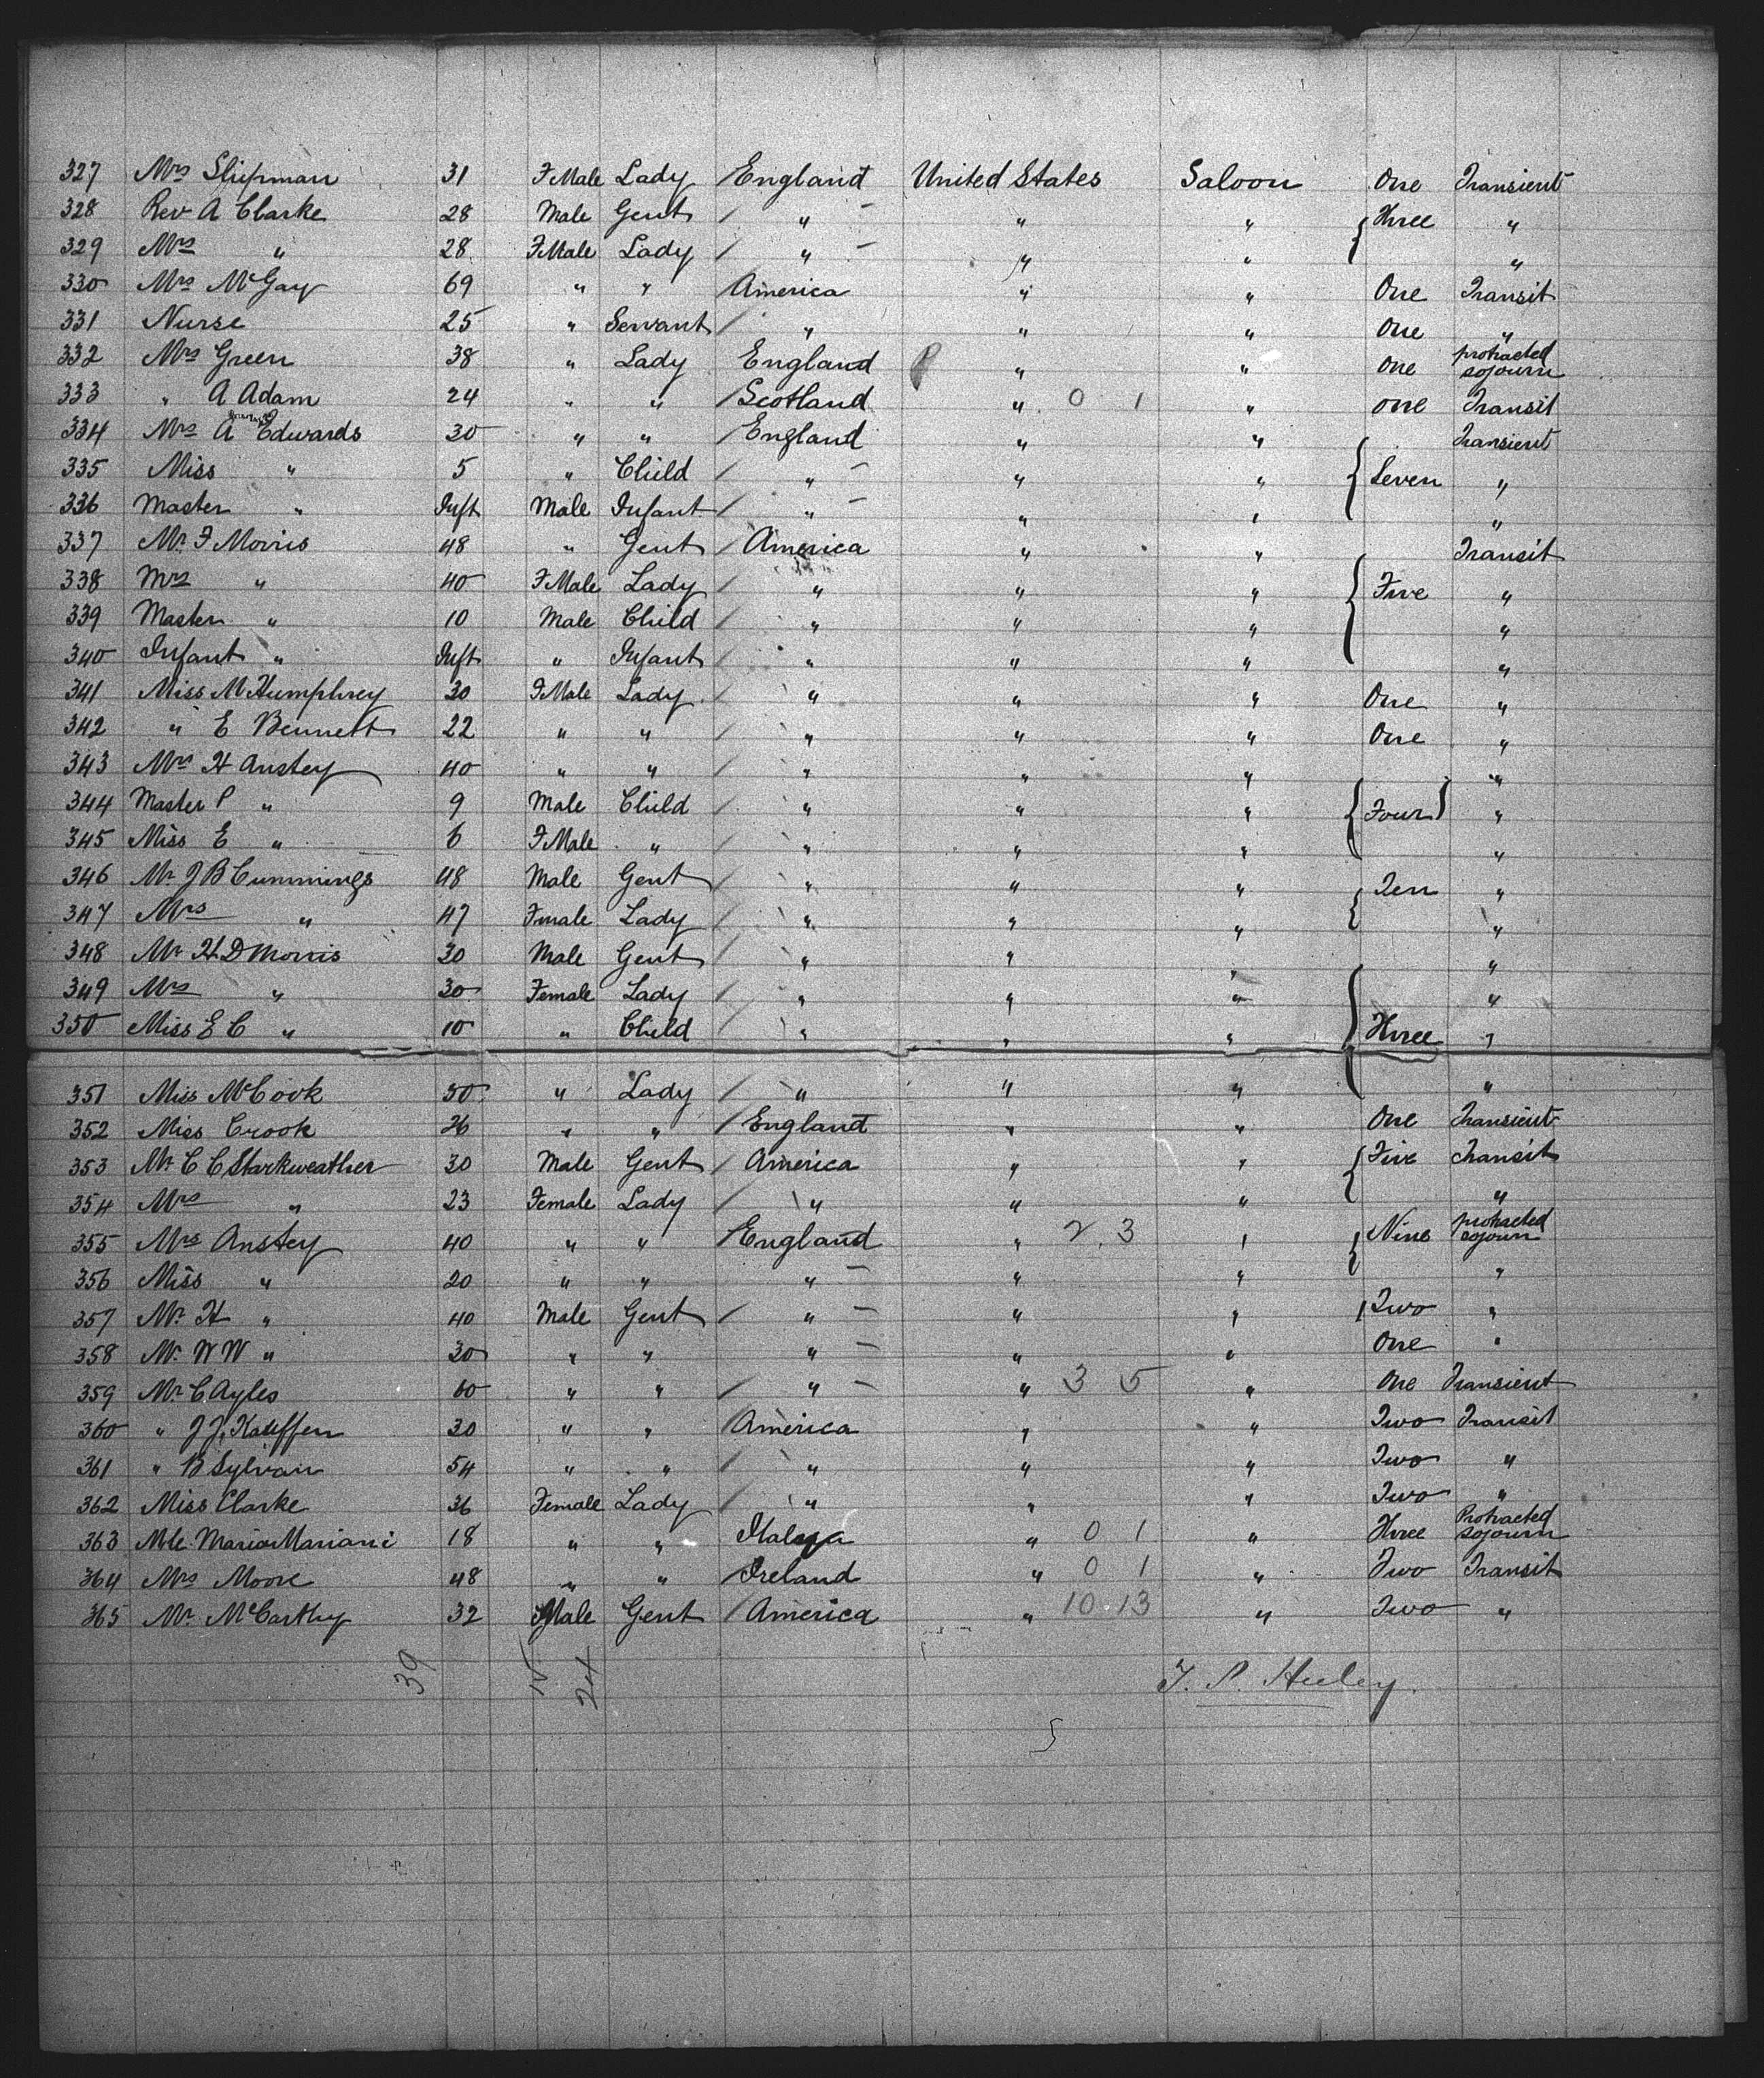 327 Mrs Shipman 31 FMale Lady England United States Saloon One Transient
328 Rev A Clarke 28 Male Gent " " " Three "
329 Mrs " 28 FMale Lady " " " "
330 Mrs McGay 69 " " America " " One Transit
331 Nurse 25 " Servant " " " One "
332 Mrs Green 38 " Lady England " " One protracted sojourn
333 " A Adam 24 " " Scotland " 0 1 " One Transit
334 Mrs A Edwards 30 " " England " " Transient
335 Miss " 5 " Child " " " Seven "
336 Master " Inft Male Infant " " " "
337 Mr F Morris 48 " Gent America " " Transit
338 Mrs " 40 FMale Lady " " " Five "
339 Master " 10 Male Child " " " "
340 Infant " Inft " Infant " " " "
341 Miss M Humphrey 30 FMale Lady " " " One "
342 " E Bennett 22 " " " " " One "
343 Mrs H Anstey 40 " " " " " "
344 Master P " 9 Male Child " " " Four "
345 Miss E " 6 FMale " " " " "
346 Mr J B Cummings 48 Male Gent " " " Ten "
347 Mrs " 47 Fmale Lady " " " "
348 Mr H D Morris 30 Male Gent " " " "
349 Mrs " 30 Female Lady " " " "
350 Miss E C " 10 " Child " " " Three "
351 Miss McCook 50 " Lady " " " "
352 Miss Crook 26 " " England " " One Transient
353 Mr C C Starkweather 30 Male Gent America " " Five Transit
354 Mrs " 23 Female Lady " " " "
355 Mrs Anstey 40 " " England " 2 . 3 " Nine protracted sojourn
356 Miss " 20 " " " " " "
357 Mr H " 40 Male Gent " " " Two "
358 Mr W W " 30 " " " " " One "
359 Mr C Ayles 60 " " " " 3 5 " One Transient
360 " J J. Kauffen 30 " " America " " Two Transit
361 " B Sylvain 54 " " " " " Two "
362 Miss Clarke 36 Female Lady " " " Two "
363 Mle Maria Mariani 18 " " " 0 1 " Three Protracted sojourn
364 Mrs Moore 48 " " Ireland " 0 1 " Two Transit
365 Mr. McCarthy 32 Male Gent America " 10.13 " Two "
39 24